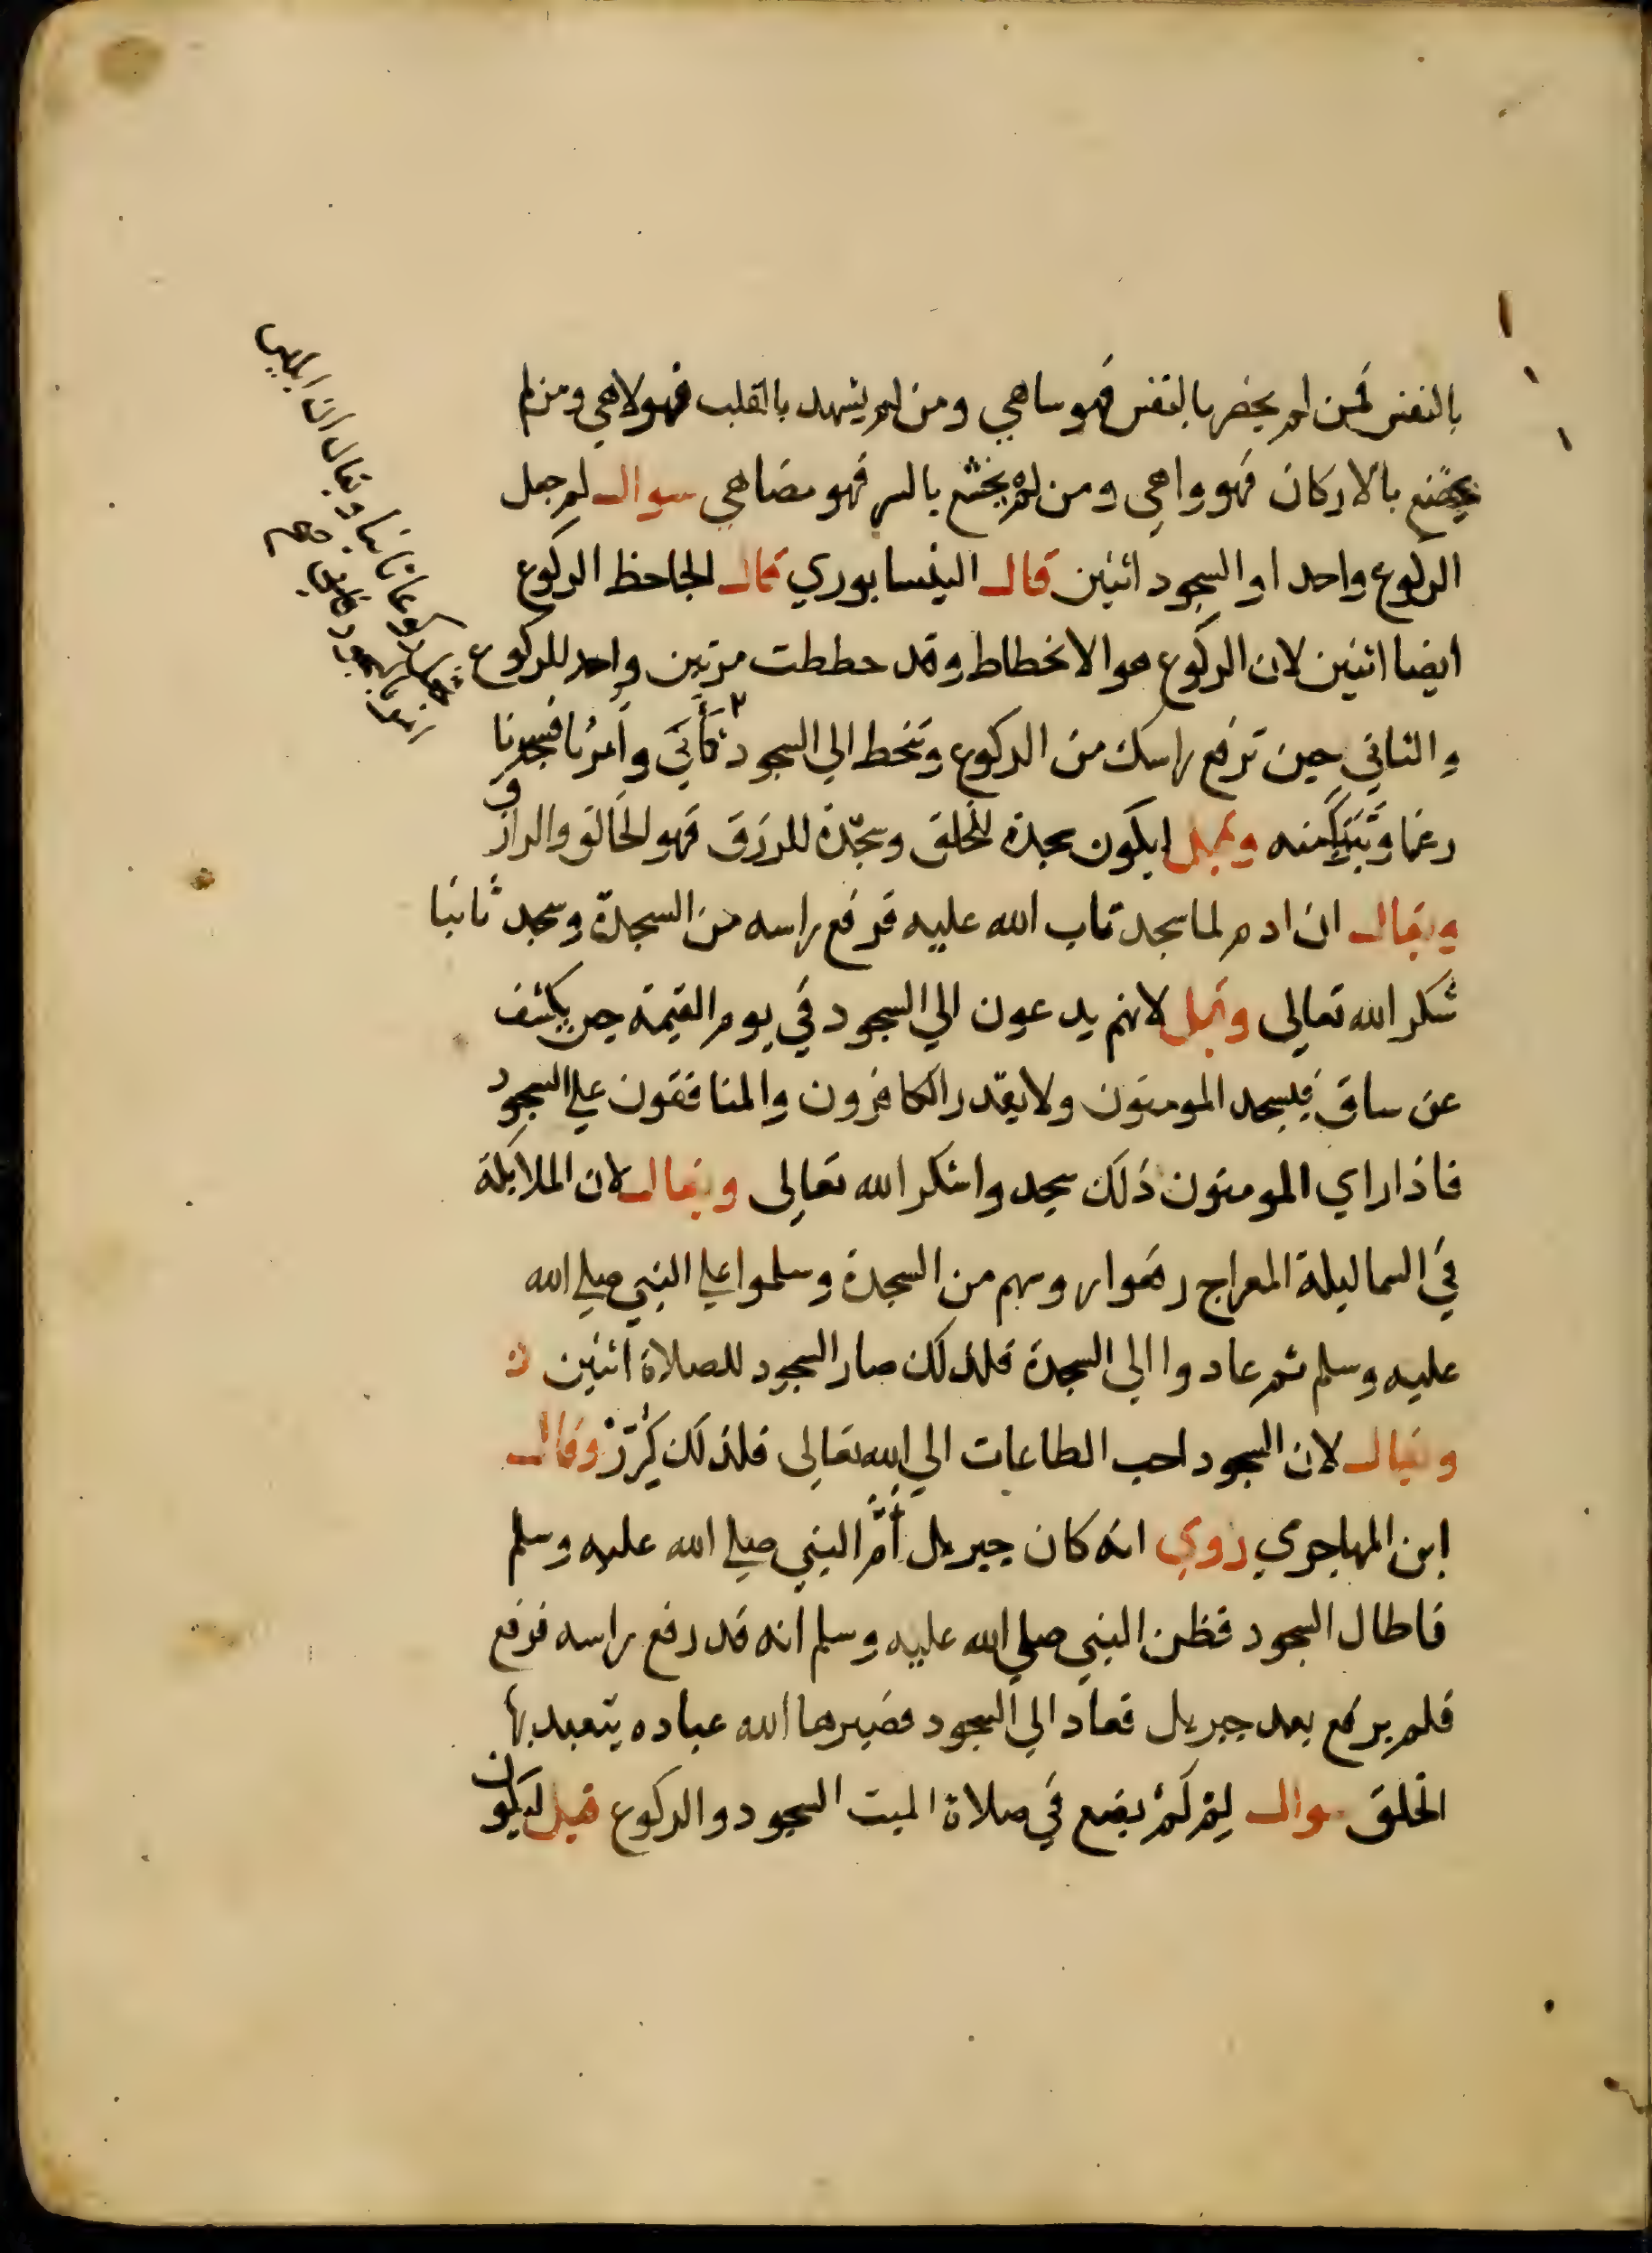 بالنفس فمن لم يحضر بالنفس فهو ساهي ومن لم يشهد بالقلب فهو لاهي ومن لم
يخضع بالاركان فهو واهي ومن لم يخشع بالسر فهو مضاهي سوال لم جعل
الركوع واحد او السجود اثنين قال النيسابوري قال الجاحظ الركوع
ايضا اثنين لان الركوع هو الانحطاط وقد حططت مرتين واحد للركوع
والثاني حين ترفع راسك من الركوع وتنحط الي السجود وامرنا فسجدنا
رغما وقيل ليكون سجدة للخلق وسجدة للرزق فهو الخالق والرازق
ويقال ان ادم لما سجد تاب الله عليه فرفع راسه من السجدة وسجد ثانيا
شكر الله تعالى وقيل لانهم يدعون الي السجود في يوم القيمة حين يكشف
عن ساق فيسجد المومنون ولا يقدر الكافرون والمنافقون علي السجود
فاذا راي المومنون ذلك سجدوا شكر الله تعالى ويقال لان الملايكة
في السما ليلة المعراج رفعوا روسهم من السجدة وسلموا علي النبي صلي الله
عليه وسلم ثم عادوا الي السجدة فلذلك صار السجود للصلاة اثنين
ويقال لان السجود احب الطاعات الي الله تعالى فلذلك كرر وقال
ابن المهاجري روي انه كان جبريل أم النبي صلي الله عليه وسلم
فاطال السجود فظن النبي صلي الله عليه وسلم انه قد رفع راسه فرفع
فلم يرفع بعد جبريل فعاد الي السجود فصيرها الله عباده يتعبد بها
الخلق سوال لم لم يضع في صلاة الميت السجود والركوع قيل ليكون
ويقال ان ابليس